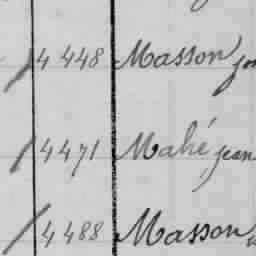 4448 Masson
4471 Mahé jean
4488 Masson